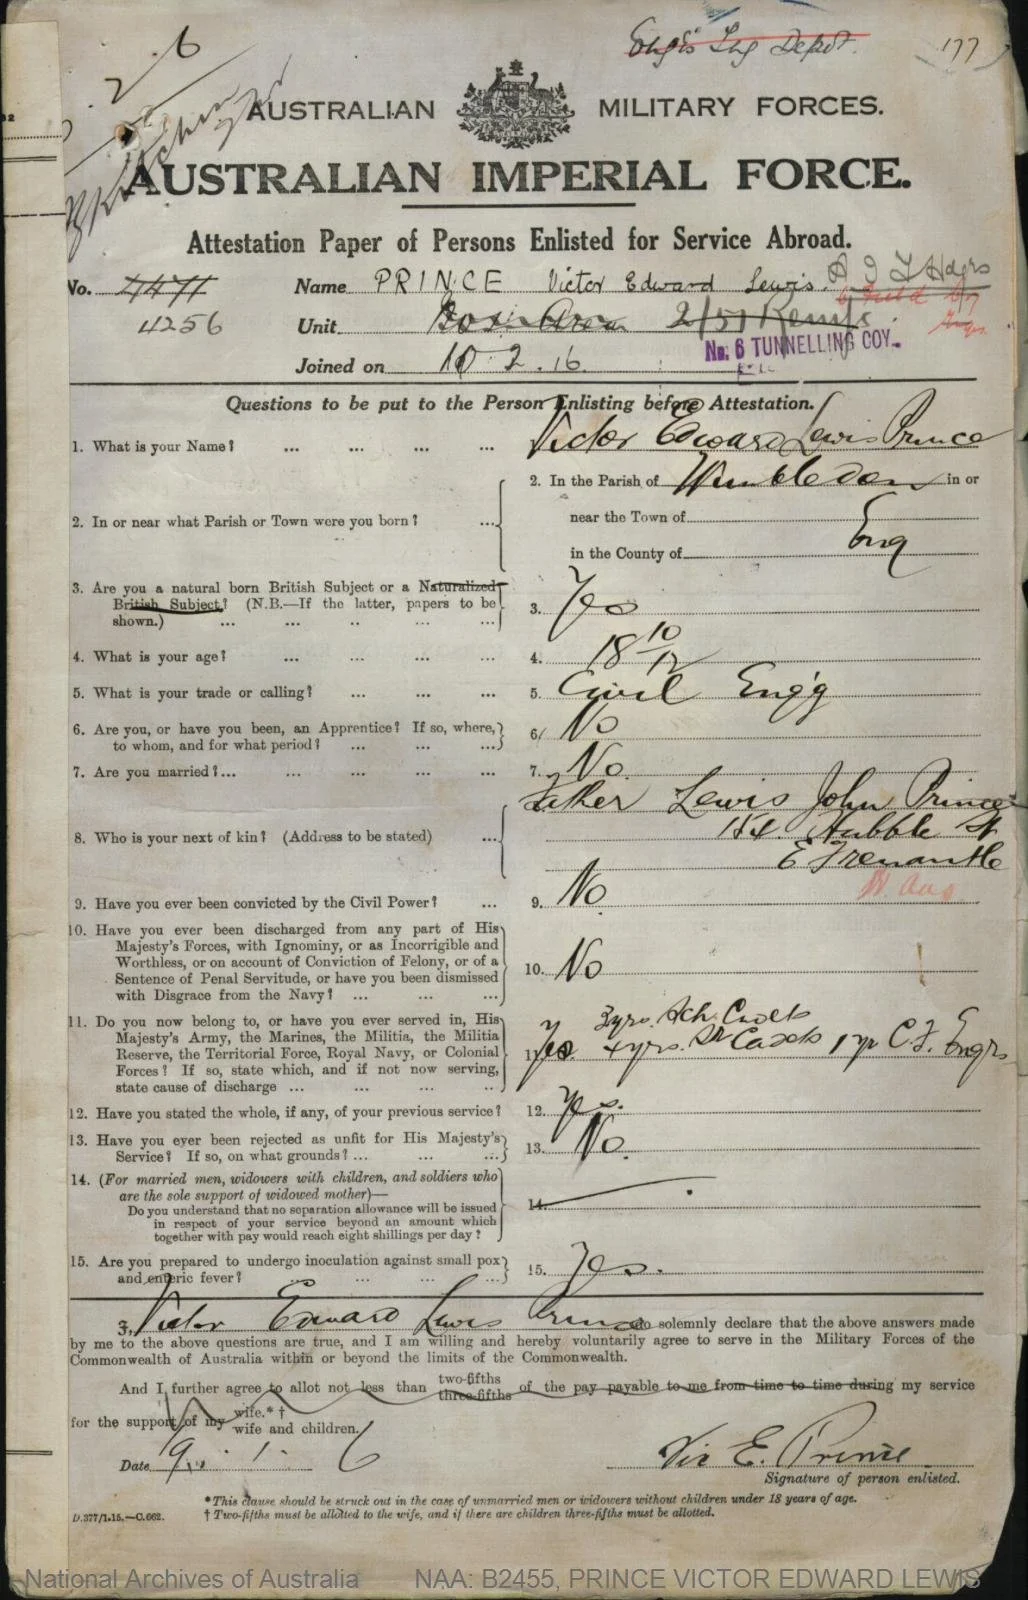 26
Eng's Depot.
177
AUSTRALIAN MILITARY FORCES.
AUSTRALIAN IMPERIAL FORCE.
Attestation Paper of Persons Enlisted for Service Abroad.
No. 4471 Name PRINCE Victor Edward Lewis. A I F Hdqrs
4256 Unit 2/51
No. 6 TUNNELLING COY.
Joined on 10.2.16.
Questions to be put to the Person Enlisting before Attestation.
1. What is your Name? ... ... ... ... Victor Edward Lewis Prince
2. In or near what Parish or Town were you born? ... 2. In the Parish of Wimbledon in or
near the Town of
in the County of Eng
3. Are you a natural born British Subject or a Naturalized
British Subject? (N.B.—If the latter, papers to be
shown.) ... ... ... ... ... 3. Yes
4. What is your age? ... ... ... ... 4. 18 10/12
5. What is your trade or calling? ... ... ... 5. Civil Eng'g
6. Are you, or have you been, an Apprentice? If so, where,
to whom, and for what period? ... ... ... 6. No
7. Are you married? ... ... ... ... ... 7. No.
8. Who is your next of kin? (Address to be stated) ... Father Lewis John Prince
154 Hubble St
E Fremantle
W Aus
9. Have you ever been convicted by the Civil Power? ... 9. No
10. Have you ever been discharged from any part of His
Majesty's Forces, with Ignominy, or as Incorrigible and
Worthless, or on account of Conviction of Felony, or of a
Sentence of Penal Servitude, or have you been dismissed
with Disgrace from the Navy? ... ... ... 10. No
11. Do you now belong to, or have you ever served in, His
Majesty's Army, the Marines, the Militia, the Militia
Reserve, the Territorial Force, Royal Navy, or Colonial
Forces? If so, state which, and if not now serving,
state cause of discharge ... ... ... ... 11. Yes 3 yrs. Sch. Cadets
4 yrs. Sr Cadets 1 yr C.F. Engrs
12. Have you stated the whole, if any, of your previous service? 12. Yes.
13. Have you ever been rejected as unfit for His Majesty's
Service? If so, on what grounds? ... ... ... 13. No.
14. (For married men, widowers with children, and soldiers who
are the sole support of widowed mother)—
Do you understand that no separation allowance will be issued
in respect of your service beyond an amount which
together with pay would reach eight shillings per day? 14.
15. Are you prepared to undergo inoculation against small pox
and enteric fever? ... ... ... ... 15. Yes.
I, Victor Edward Lewis Prince do solemnly declare that the above answers made
by me to the above questions are true, and I am willing and hereby voluntarily agree to serve in the Military Forces of the
Commonwealth of Australia within or beyond the limits of the Commonwealth.
And I further agree to allot not less than two-fifths three-fifths of the pay payable to me from time to time during my service
for the support of my wife.*† wife and children.
Date 19. 1. 6 Vic E. Prince
Signature of person enlisted.
*This clause should be struck out in the case of unmarried men or widowers without children under 18 years of age.
D.377/1.15.—C.662. † Two-fifths must be allotted to the wife, and if there are children three-fifths must be allotted.
National Archives of Australia NAA: B2455, PRINCE VICTOR EDWARD LEWIS